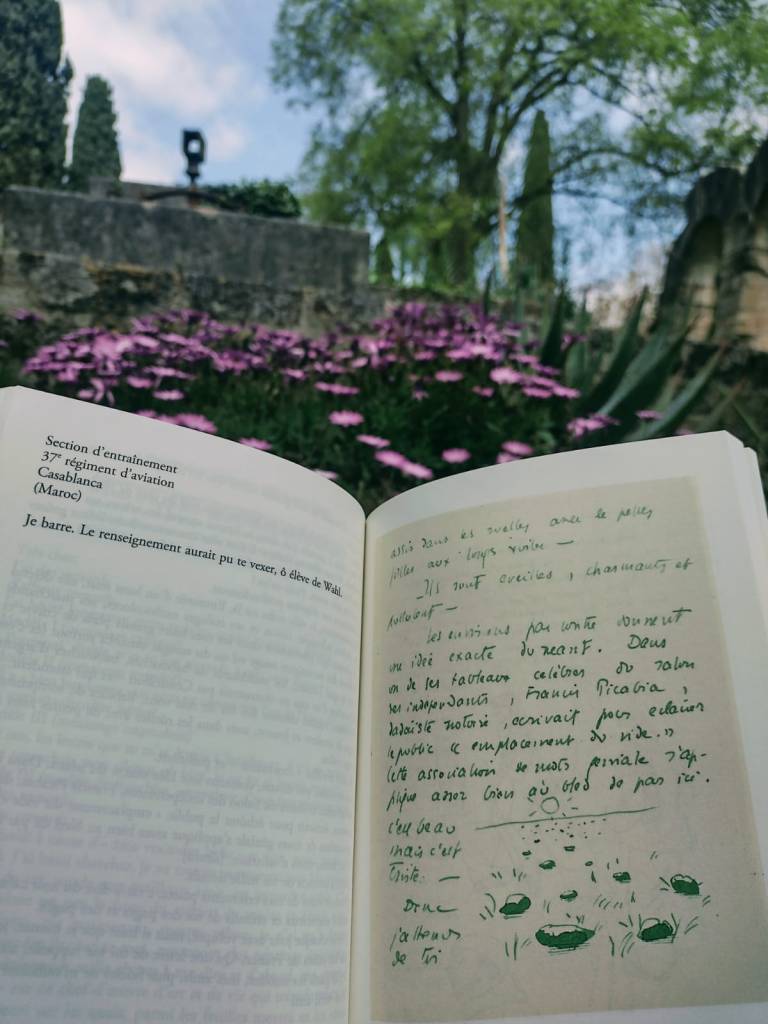 Section d'entraînement
37e régiment d'aviation
Casablanca
(Maroc)
Je barre. Le renseignement aurait pu te vexer, ô élève de Wahl.
assis dans les ruelles avec le
filles aux longs
Ils sont eveillés, charmants et
pullulent —
Les environs par contre donnent
une idée exacte du neant. Dans
un de ses tableaux celèbres du salon
des independants, Francis Picabia,
dadaïste notoire, ecrivait pour eclairer
le public « emplacement du vide. »
Cette association de mots geniale s'ap-
plique assez bien au bled de par ici.
c'est beau
mais c'est
triste. —
Donc
j'attends
de